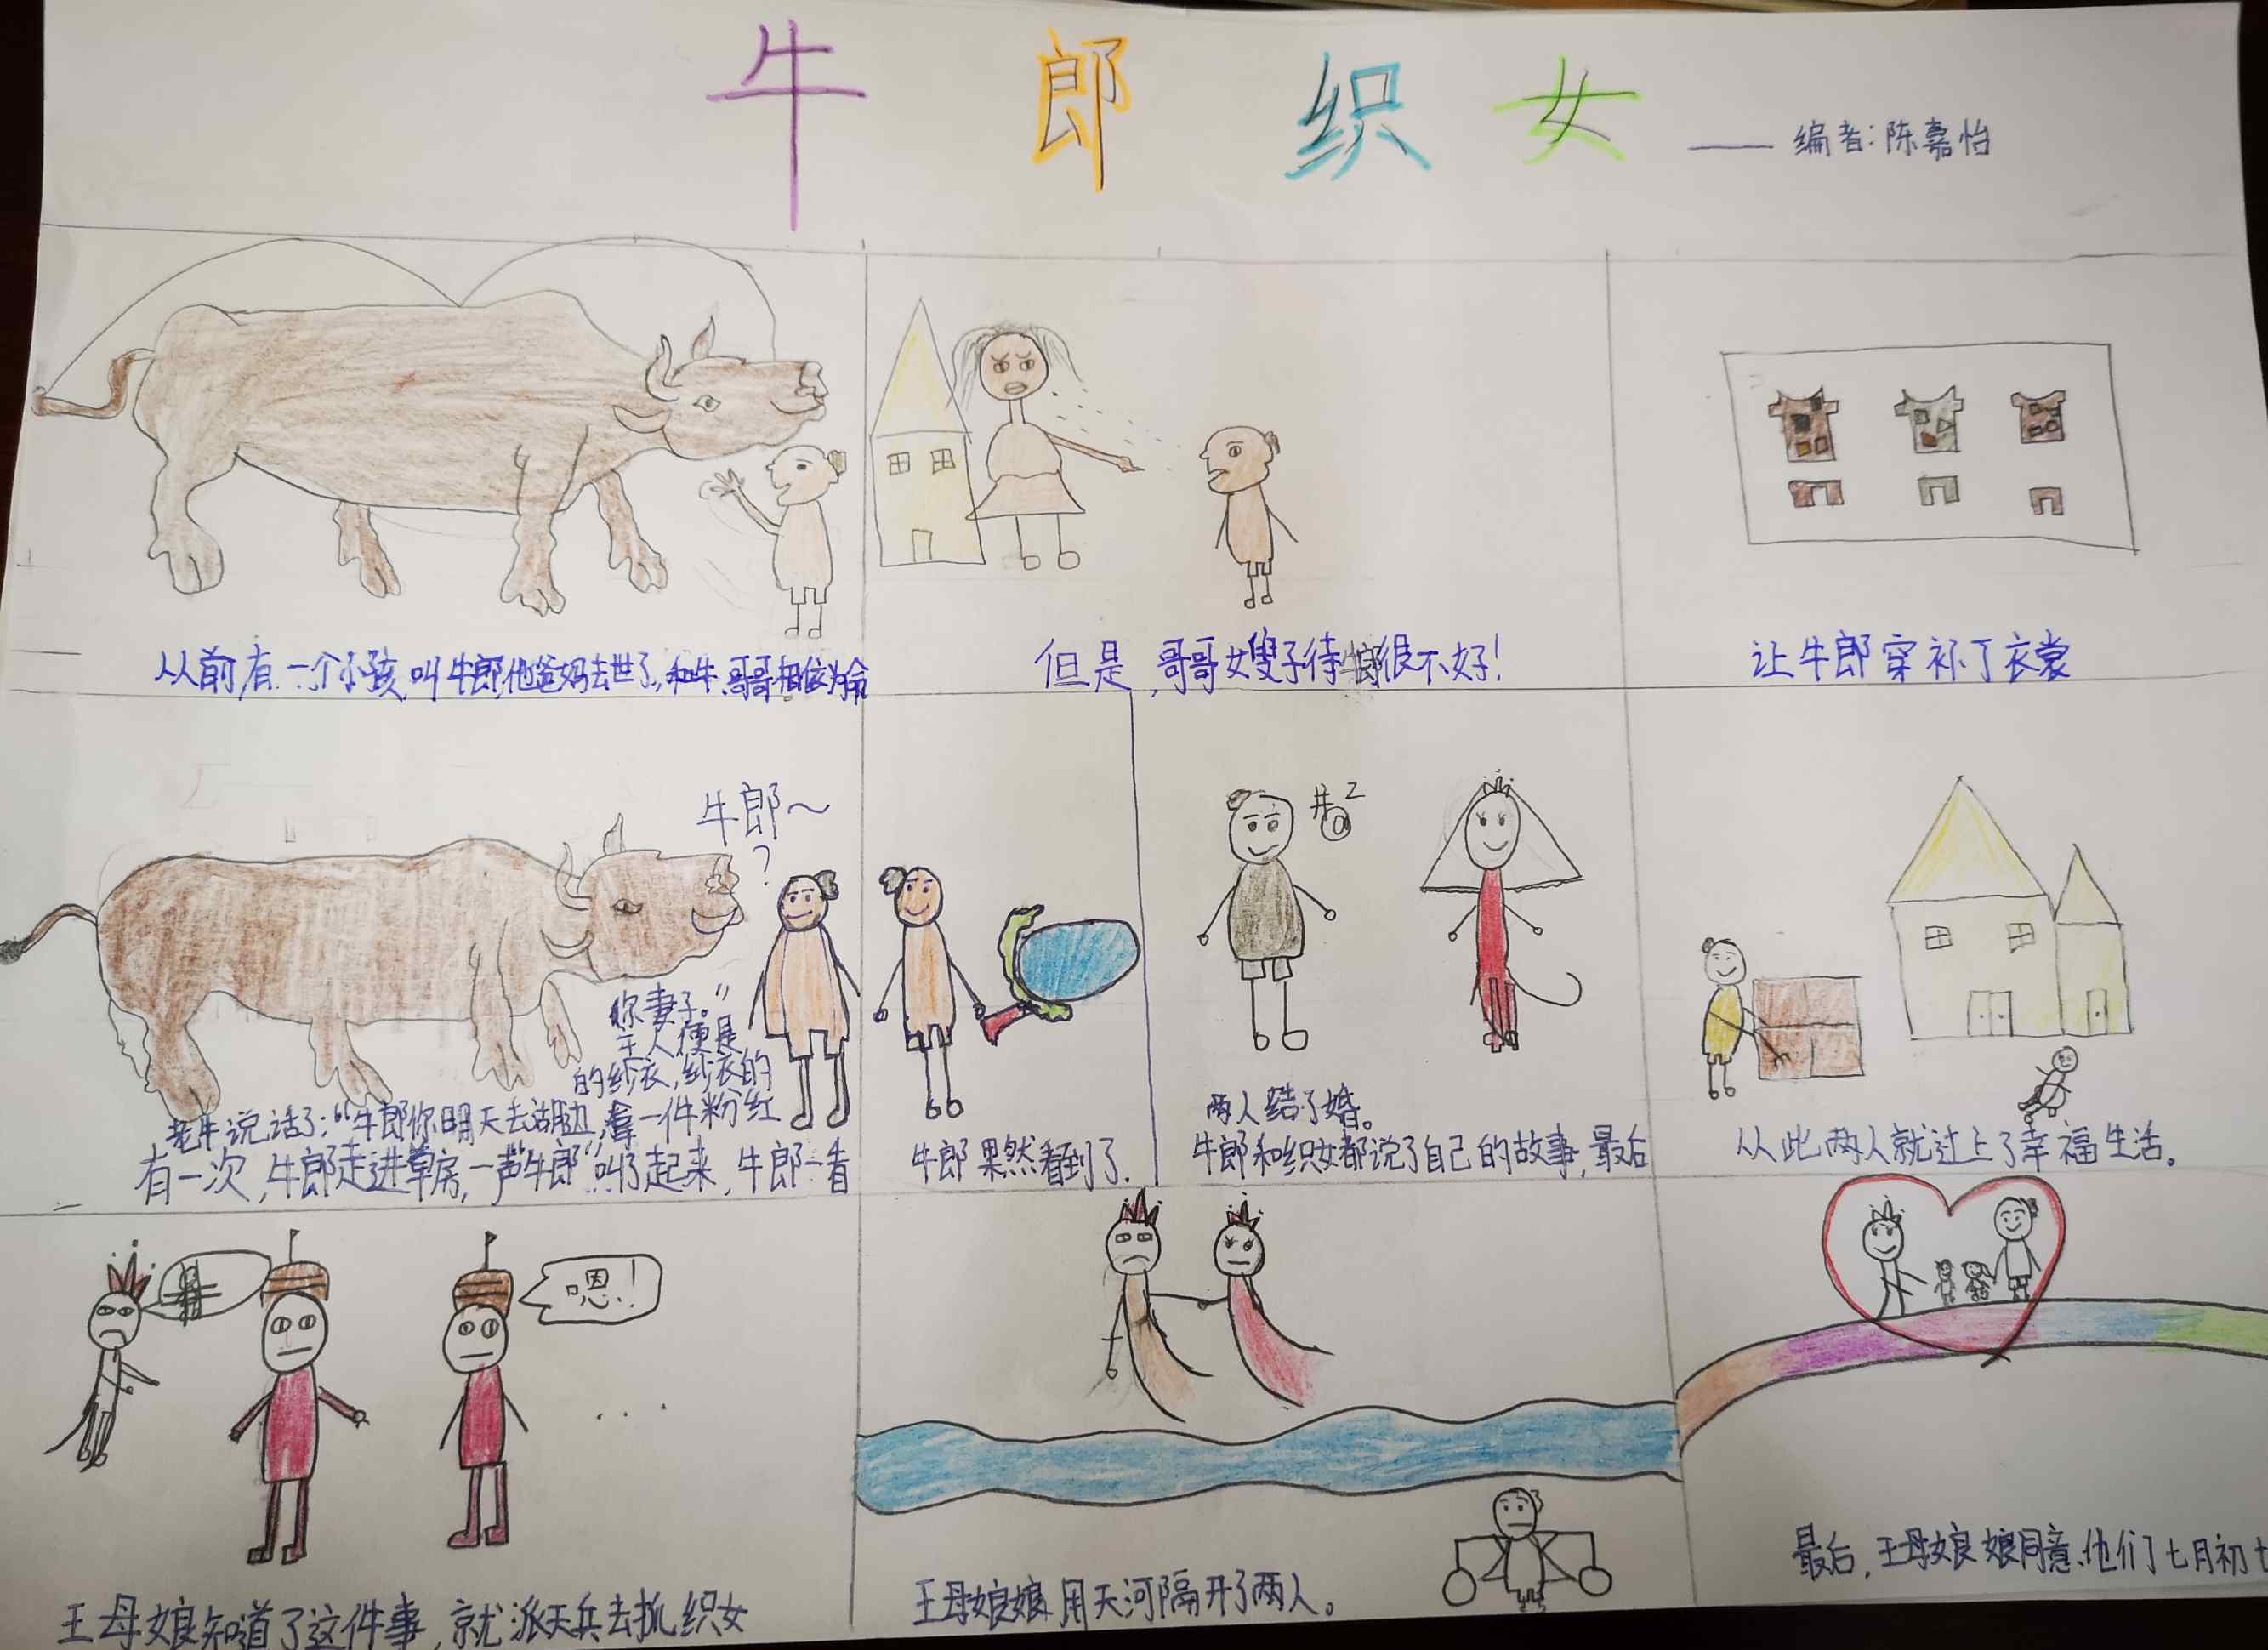 牛郎织女
——编者:陈嘉怡
从前,有一个小孩,叫牛郎,他爸妈去世了,和牛、哥哥相依为命
但是,哥哥嫂子待牛郎很不好!
让牛郎穿补丁衣裳
牛郎~
?
你妻子。”
主人便是
的纱衣,纱衣的
老牛说话了:“牛郎你明天去湖边,拿一件粉红
有一次,牛郎走进草房,一声“牛郎”叫了起来,牛郎一看
牛郎果然看到了.
井@z
两人结了婚。
牛郎和织女都说了自己的故事,最后
从此两人就过上了幸福生活。
嗯!
王母娘知道了这件事,就派天兵去抓织女
王母娘娘用天河隔开了两人。
最后,王母娘娘同意他们七月初七